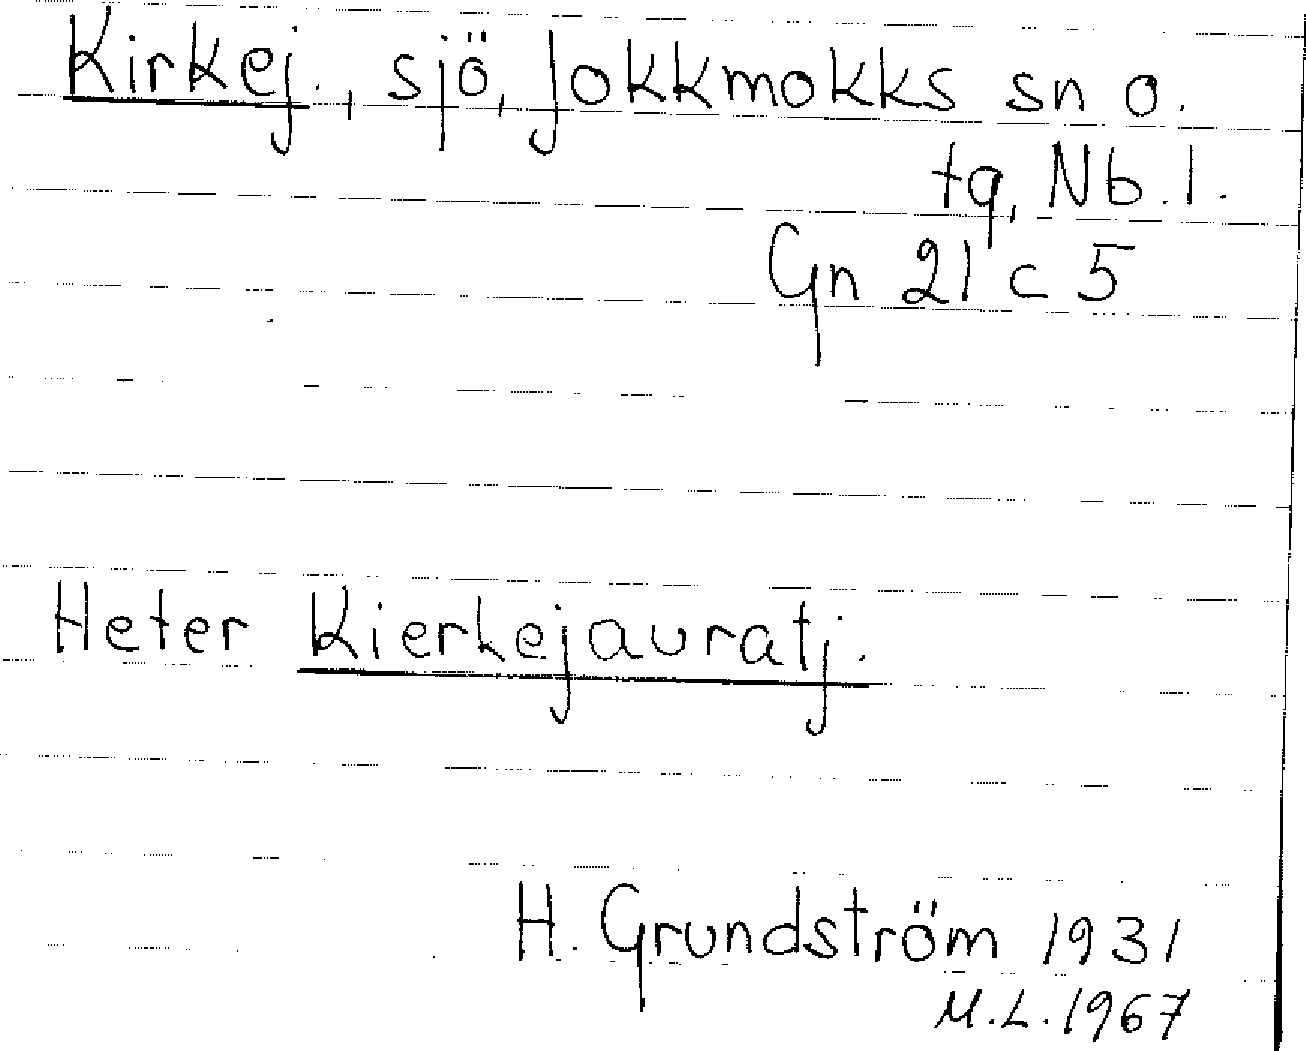 Kirkej., sjö, Jokkmokks sn o.
tg, Nb. l.
Gn 21 c 5
Heter Kierkejauratj.
H. Grundström 1931
M.L. 1967